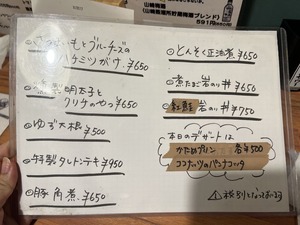 山崎梅酒
(山崎蒸溜所貯蔵梅酒ブレンド)
591円
さつまいもとブルーチーズの
ハチミツがけ ¥650
燻製 明太子と
クリチのやつ ¥650
ゆず大根 ¥500
特製タレトンテキ ¥950
豚角煮 ¥650
とんそく正油煮 ¥650
煮たまご岩のり丼 ¥650
紅鮭 岩のり丼 ¥750
本日のデザートは
かためプリン 各¥500
ココナッツのパンナコッタ
⚠税別となっております